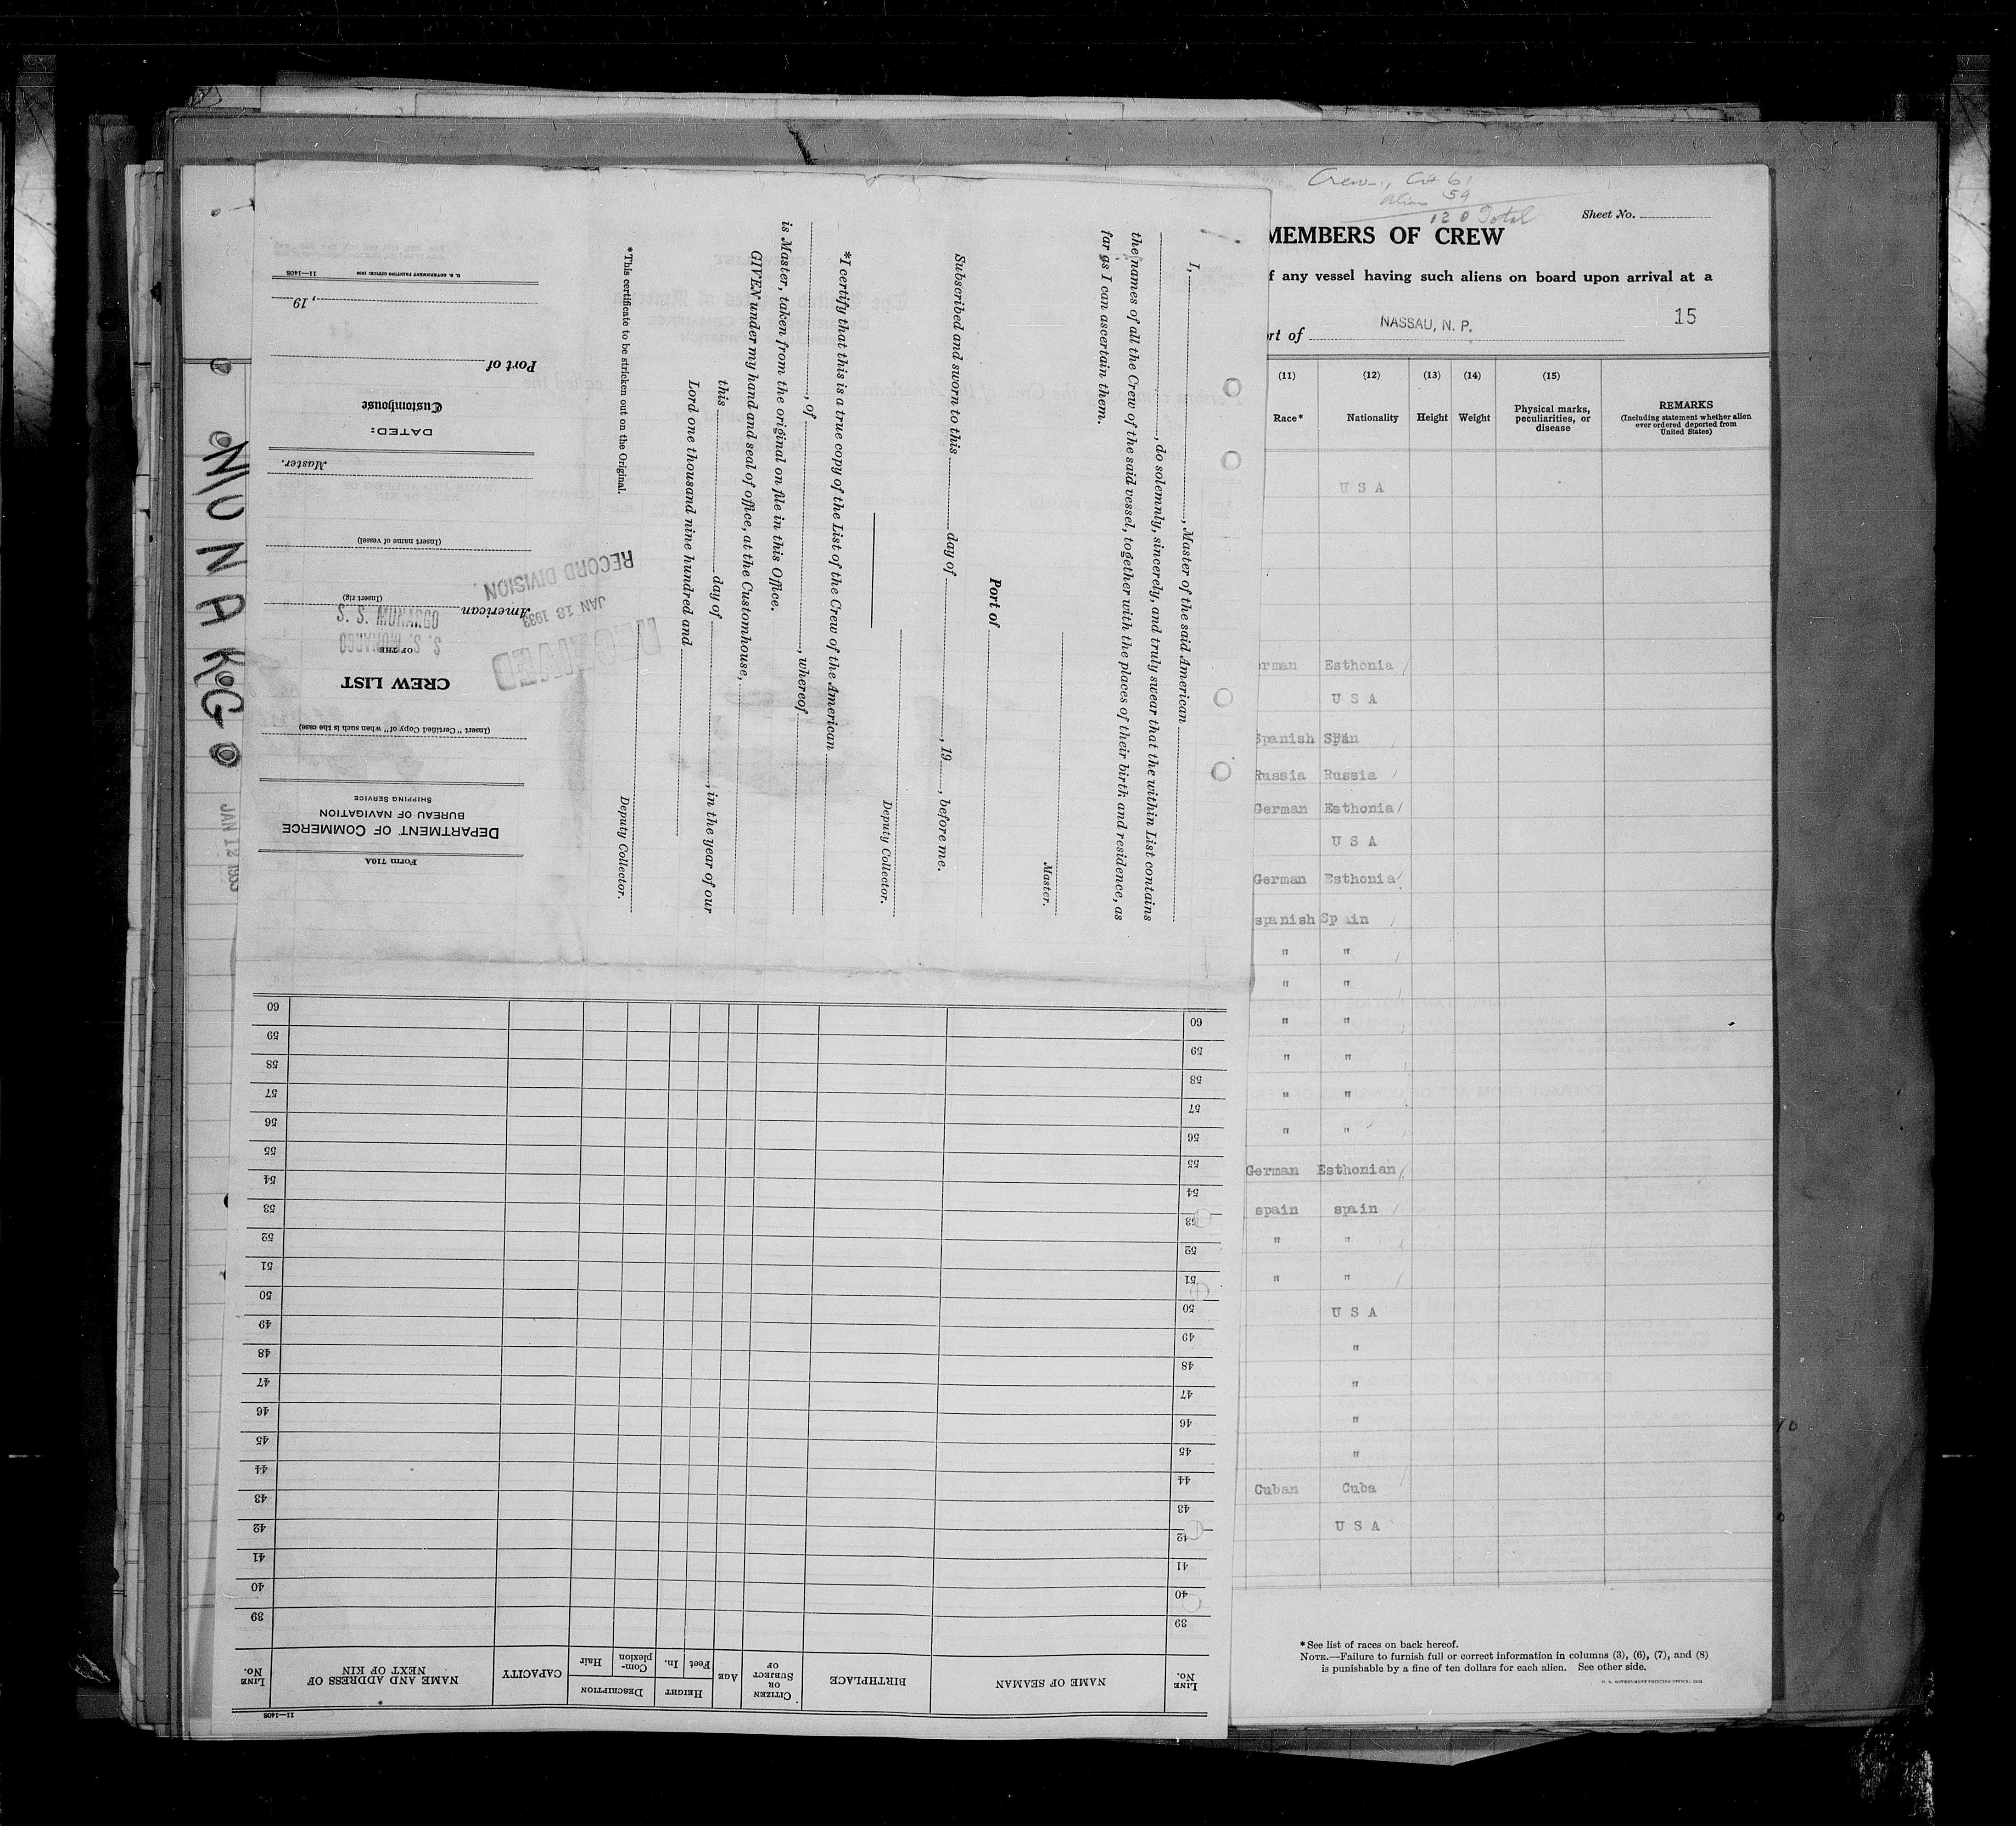 Crew Cit 61
Alien 59
120 Total
Sheet No.
MEMBERS OF CREW
f any vessel having such aliens on board upon arrival at a
rt of NASSAU, N. P.
15
(11) (12) (13) (14) (15)
Race* Nationality Height Weight Physical marks, peculiarities, or disease REMARKS (Including statement whether alien ever ordered deported from United States)
U S A
rman Esthonia
U S A
Spanish Spain
Russia Russia
German Esthonia
U S A
German Esthonia
spanish Spain
" "
" "
" "
" "
" "
" "
German Esthonian
spain spain
" "
" "
U S A
"
"
"
"
Cuban Cuba
U S A
*See list of races on back hereof.
NOTE.—Failure to furnish full or correct information in columns (3), (6), (7), and (8)
is punishable by a fine of ten dollars for each alien. See other side.
U. S. GOVERNMENT PRINTING OFFICE: 1932
MUNARGO
JAN 12 1933
I, , Master of the said American
, do solemnly, sincerely, and truly swear that the within List contains
the names of all the Crew of the said vessel, together with the places of their birth and residence, as
far as I can ascertain them.
Master.
Port of
Subscribed and sworn to this day of , 19 , before me.
Deputy Collector.
*I certify that this is a true copy of the List of the Crew of the American
, of , whereof
is Master, taken from the original on file in this Office.
GIVEN under my hand and seal of office, at the Customhouse,
this day of , in the year of our
Lord one thousand nine hundred and
Deputy Collector.
*This certificate to be stricken out on the Original.
Form 710A
DEPARTMENT OF COMMERCE
BUREAU OF NAVIGATION
SHIPPING SERVICE
(Insert "Certified Copy of" when such is the case)
CREW LIST
OF THE
S. S. MUNARGO
S. S. MUNARGO
American
(Insert rig)
(Insert name of vessel)
Master.
DATED:
Customhouse
Port of
, 19
U. S. GOVERNMENT PRINTING OFFICE 11—1408
RECEIVED
JAN 13 1933
RECORD DIVISION
11—1408
LINE No. NAME OF SEAMAN BIRTHPLACE CITIZEN OR SUBJECT OF AGE HEIGHT Feet In. DESCRIPTION Complexion Hair CAPACITY NAME AND ADDRESS OF NEXT OF KIN LINE No.
39 39
40 40
41 41
42 42
43 43
44 44
45 45
46 46
47 47
48 48
49 49
50 50
51 51
52 52
53 53
54 54
55 55
56 56
57 57
58 58
59 59
60 60